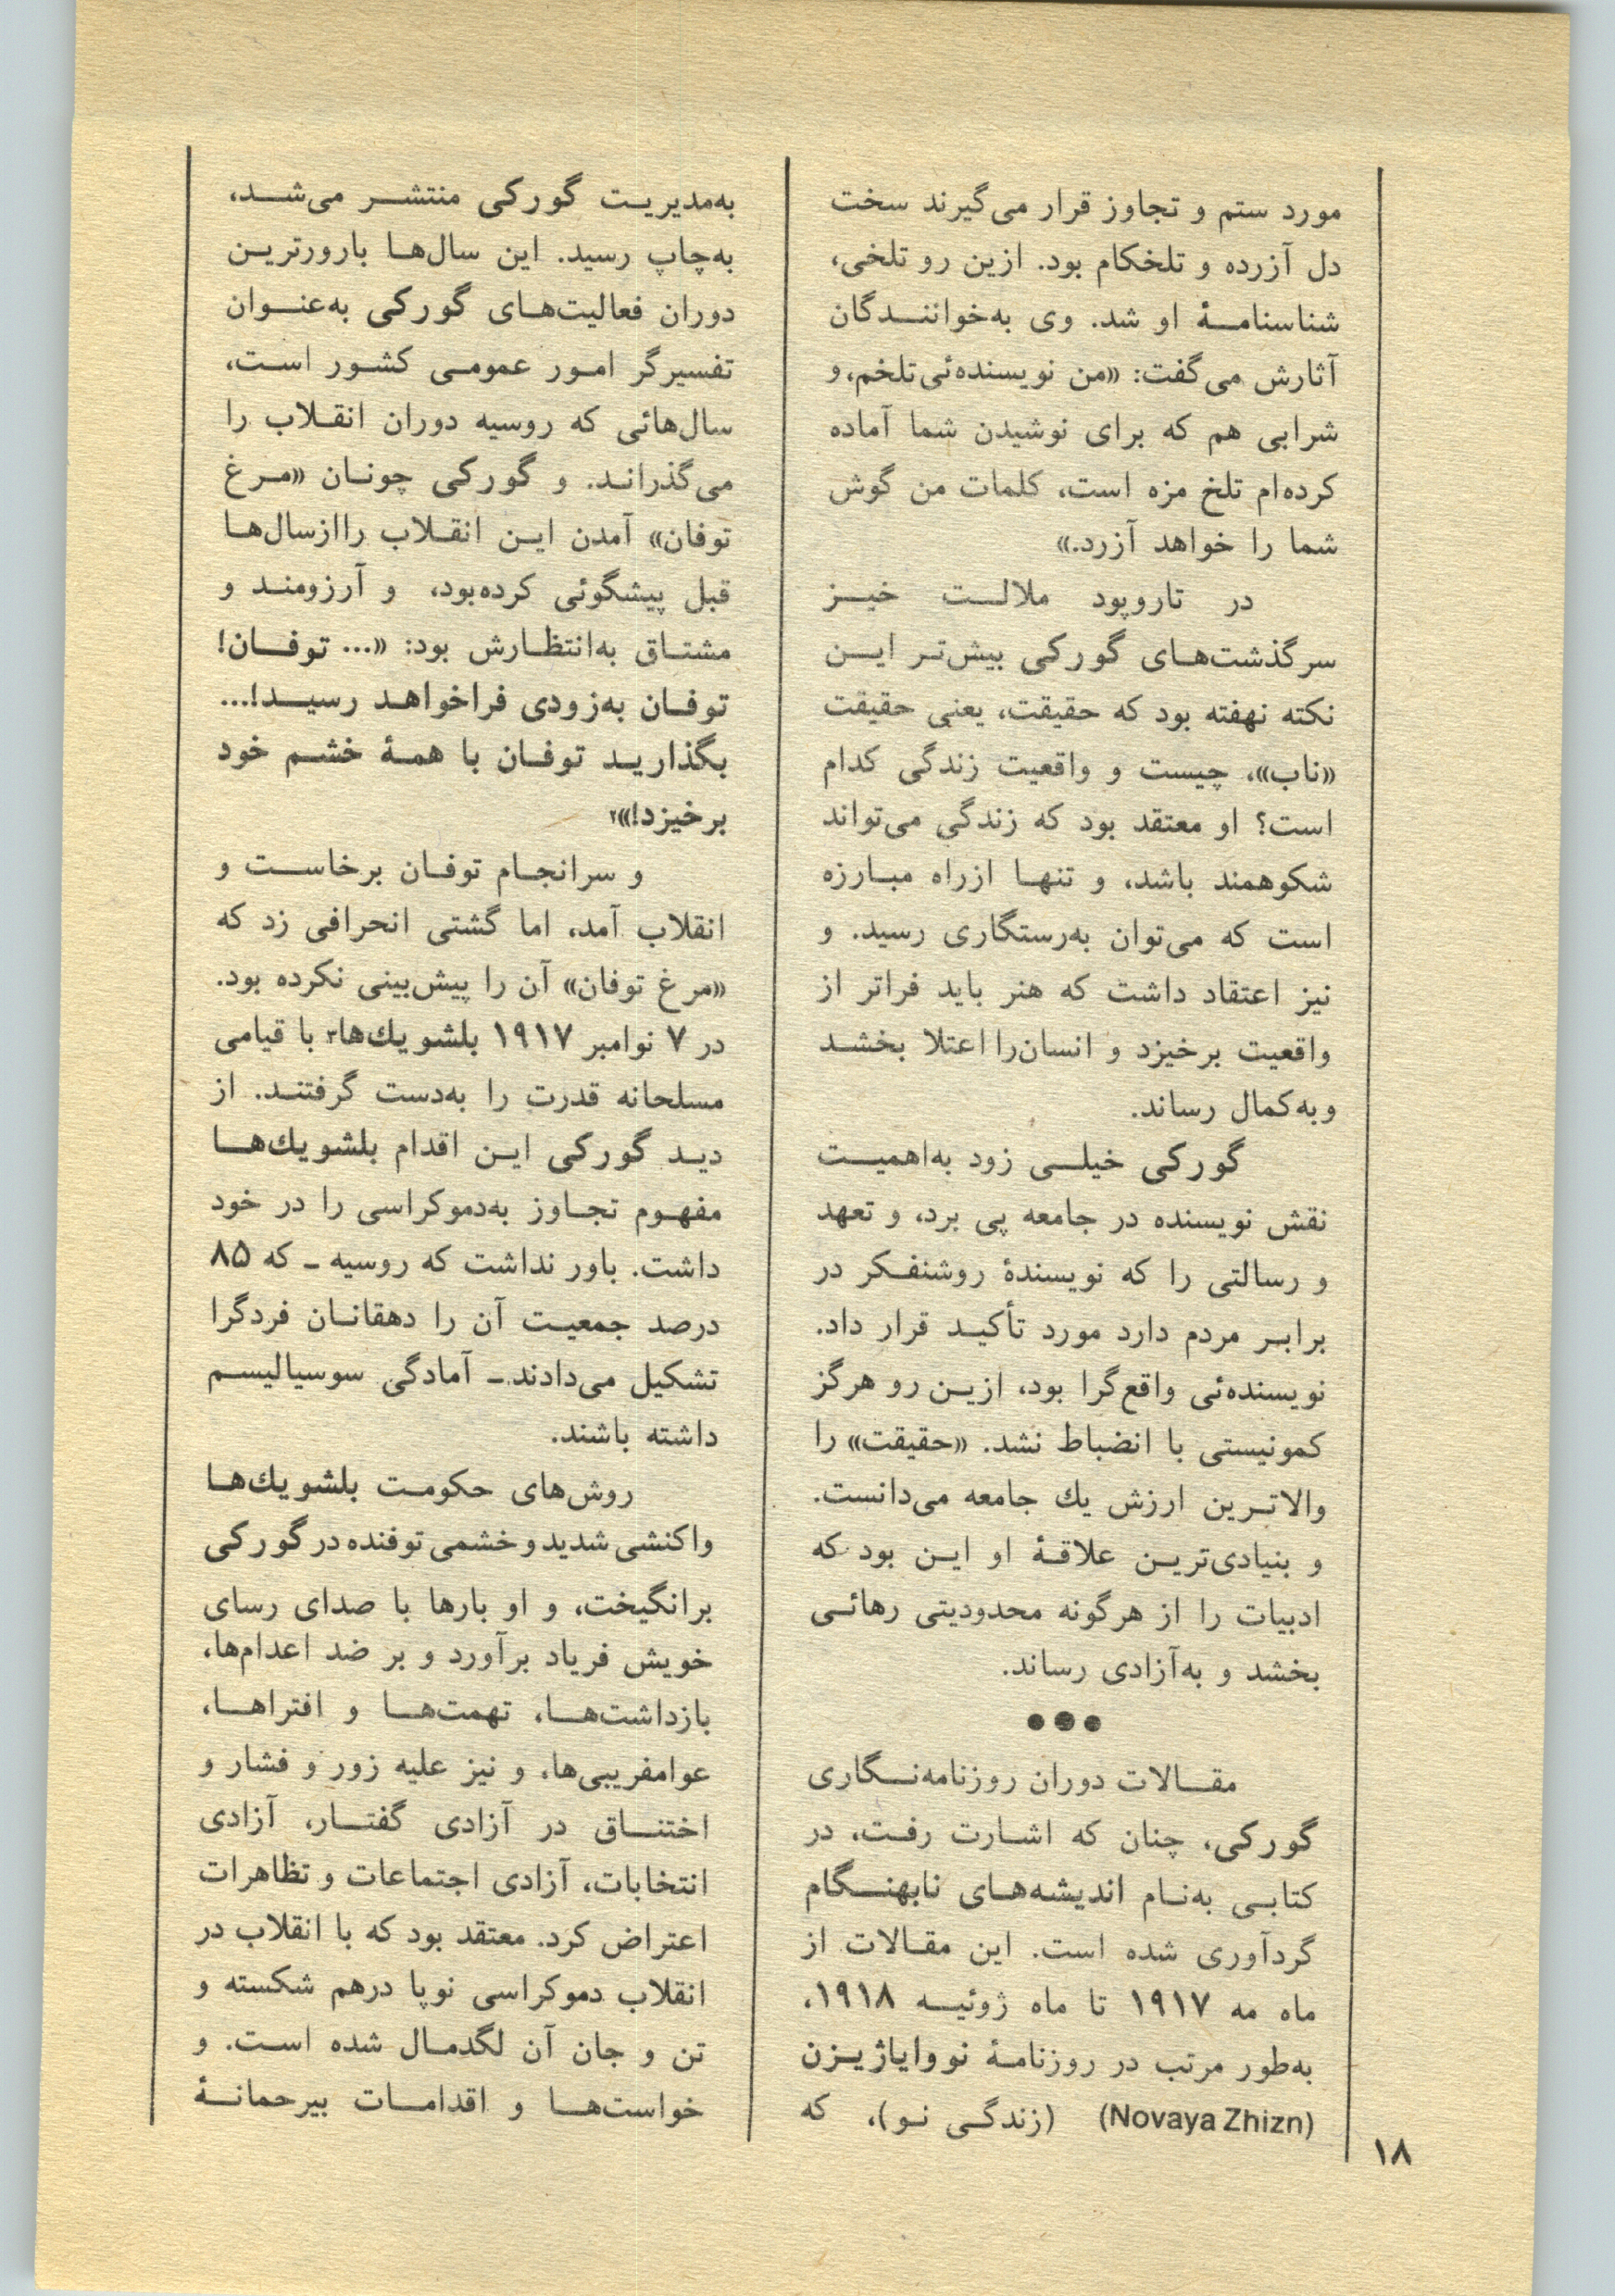 مورد ستم و تجاوز قرار می‌گیرند سخت
دل آزرده و تلخکام بود. ازین رو تلخی،
شناسنامهٔ او شد. وی به‌خوانندگان
آثارش می‌گفت: «من نویسنده‌ئی تلخم، و
شرابی هم که برای نوشیدن شما آماده
کرده‌ام تلخ مزه است، کلمات من گوش
شما را خواهد آزرد.»
در تاروپود ملالت خیز
سرگذشت‌های گورکی بیش‌تر این
نکته نهفته بود که حقیقت، یعنی حقیقت
«ناب»، چیست و واقعیت زندگی کدام
است؟ او معتقد بود که زندگی می‌تواند
شکوهمند باشد، و تنها ازراه مبارزه
است که می‌توان به‌رستگاری رسید. و
نیز اعتقاد داشت که هنر باید فراتر از
واقعیت برخیزد و انسان‌را اعتلا بخشد
وبه‌کمال رساند.
گورکی خیلی زود به‌اهمیت
نقش نویسنده در جامعه پی برد، و تعهد
و رسالتی را که نویسندهٔ روشنفکر در
برابر مردم دارد مورد تأکید قرار داد.
نویسنده‌ئی واقع‌گرا بود، ازین رو هرگز
کمونیستی با انضباط نشد. «حقیقت» را
والاترین ارزش یك جامعه می‌دانست.
و بنیادی‌ترین علاقهٔ او این بود که
ادبیات را از هرگونه محدودیتی رهائی
بخشد و به‌آزادی رساند.
●●●
مقالات دوران روزنامه‌نگاری
گورکی، چنان که اشارت رفت، در
کتابی به‌نام اندیشه‌های نابهنگام
گردآوری شده است. این مقالات از
ماه مه ۱۹۱۷ تا ماه ژوئیه ۱۹۱۸،
به‌طور مرتب در روزنامهٔ نووایاژیزن
(Novaya Zhizn) (زندگی نو)، که
به‌مدیریت گورکی منتشر می‌شد،
به‌چاپ رسید. این سال‌ها بارورترین
دوران فعالیت‌های گورکی به‌عنوان
تفسیرگر امور عمومی کشور است،
سال‌هائی که روسیه دوران انقلاب را
می‌گذراند. و گورکی چونان «مرغ
توفان» آمدن این انقلاب راازسال‌ها
قبل پیشگوئی کرده‌بود، و آرزومند و
مشتاق به‌انتظارش بود: «... توفان!
توفان به‌زودی فراخواهد رسید!...
بگذارید توفان با همهٔ خشم خود
برخیزد!»۲
و سرانجام توفان برخاست و
انقلاب آمد، اما گشتی انحرافی زد که
«مرغ توفان» آن را پیش‌بینی نکرده بود.
در ۷ نوامبر ۱۹۱۷ بلشویك‌ها۳ با قیامی
مسلحانه قدرت را به‌دست گرفتند. از
دید گورکی این اقدام بلشویك‌ها
مفهوم تجاوز به‌دموکراسی را در خود
داشت. باور نداشت که روسیه ـ که ۸۵
درصد جمعیت آن را دهقانان فردگرا
تشکیل می‌دادند ـ آمادگی سوسیالیسم
داشته باشند.
روش‌های حکومت بلشویك‌ها
واکنشی شدید و خشمی توفنده در گورکی
برانگیخت، و او بارها با صدای رسای
خویش فریاد برآورد و بر ضد اعدام‌ها،
بازداشت‌ها، تهمت‌ها و افتراها،
عوامفریبی‌ها، و نیز علیه زور و فشار و
اختناق در آزادی گفتار، آزادی
انتخابات، آزادی اجتماعات و تظاهرات
اعتراض کرد. معتقد بود که با انقلاب در
انقلاب دموکراسی نوپا درهم شکسته و
تن و جان آن لگدمال شده است. و
خواست‌ها و اقدامات بیرحمانهٔ
۱۸